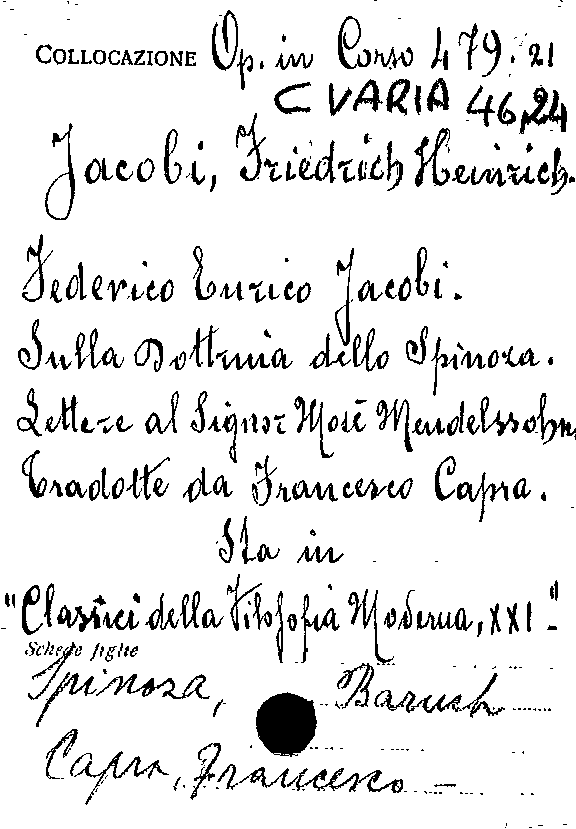 COLLOCAZIONE Op. in Corso 479. 21
C VARIA 46,24
Jacobi, Friedrich Heinrich.
Federico Enrico Jacobi.
Sulla Dottrina dello Spinoza.
Lettere al Signor Mosè Mendelssohn
Tradotte da Francesco Capra.
Sta in
"Classici della Filosofia Moderna, XXI"-
Schede figlie
Spinoza, Baruch
Capra, Francesco -